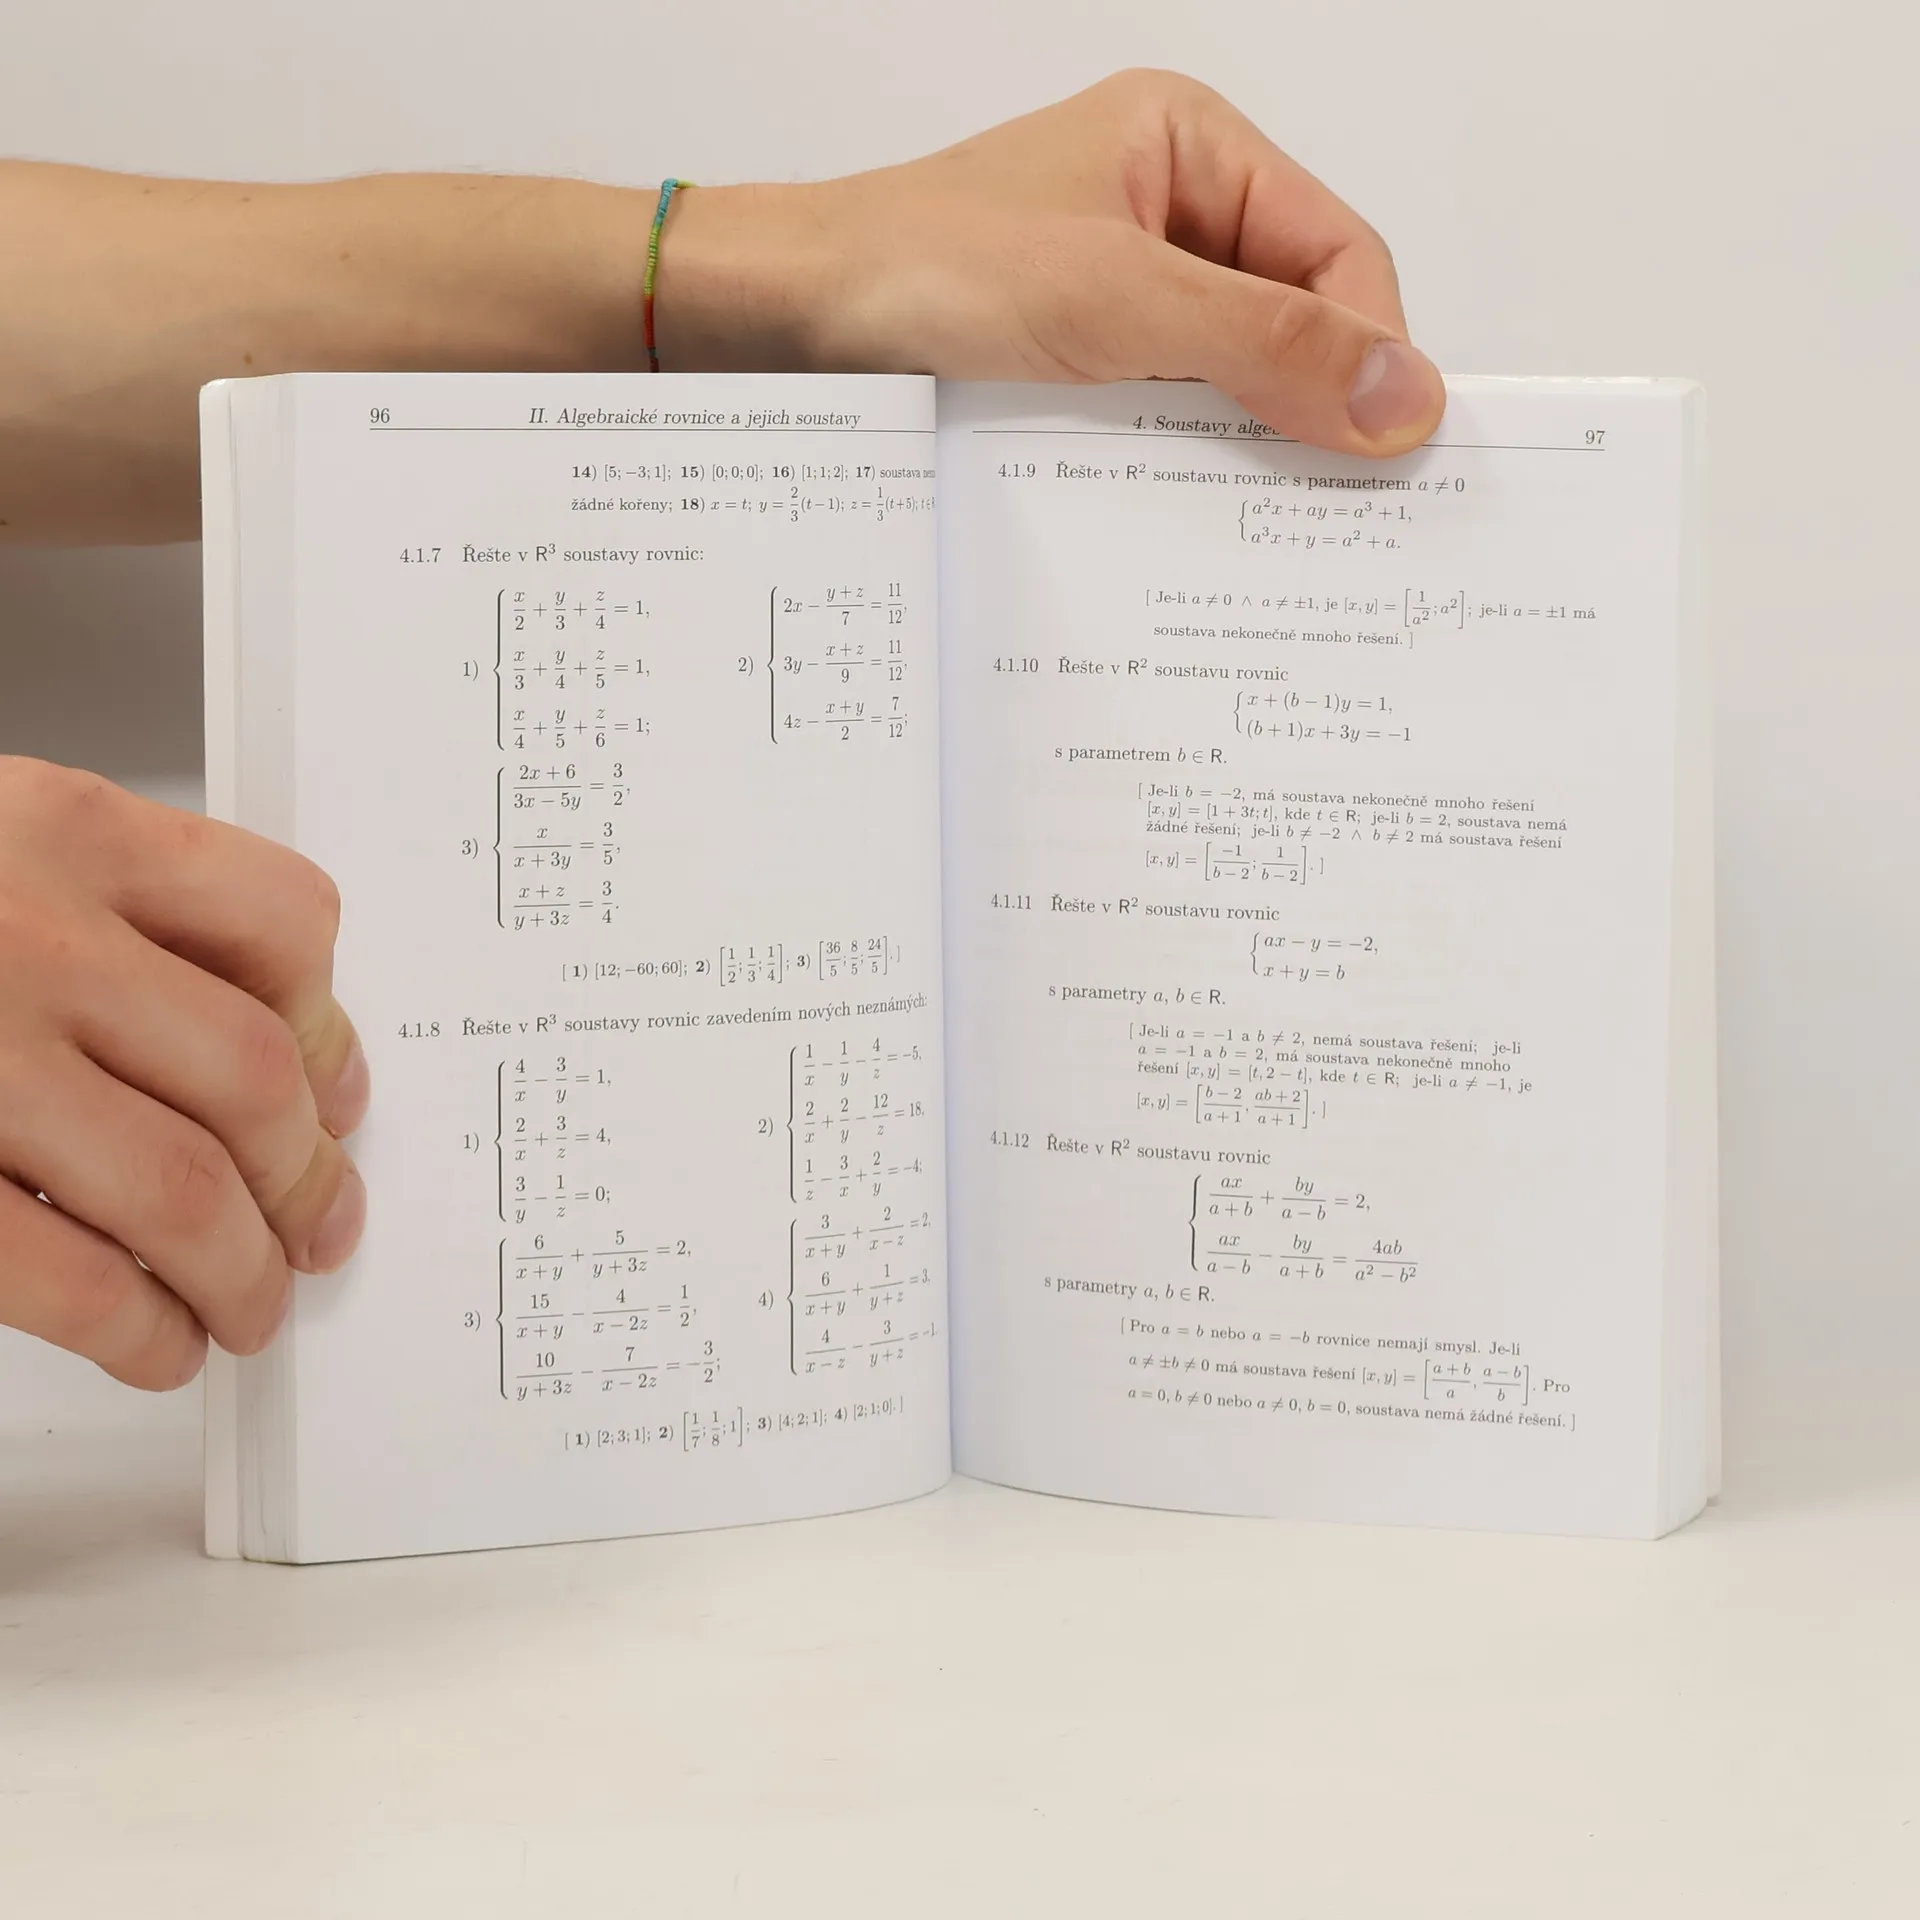 96 II. Algebraické rovnice a jejich soustavy
14) [5; −3; 1]; 15) [0; 0; 0]; 16) [1; 1; 2]; 17) soustava
žádné kořeny; 18) x = t; y = 2/3(t−1); z = 1/3(t+5); t ∈
4.1.7 Řešte v R³ soustavy rovnic:
1) { x/2 + y/3 + z/4 = 1,
x/3 + y/4 + z/5 = 1,
x/4 + y/5 + z/6 = 1;
2) { 2x − (y + z)/7 = 11/12,
3y − (x + z)/9 = 11/12,
4z − (x + y)/2 = 7/12;
3) { (2x + 6)/(3x − 5y) = 3/2,
x/(x + 3y) = 3/5,
(x + z)/(y + 3z) = 3/4.
[ 1) [12; −60; 60]; 2) [1/2; 1/3; 1/4]; 3) [36/5; 8/5; 24/5]. ]
4.1.8 Řešte v R³ soustavy rovnic zavedením nových neznámých:
1) { 4/x − 3/y = 1,
2/x + 3/z = 4,
3/y − 1/z = 0;
2) { 1/x − 1/y − 4/z = −5,
2/x + 2/y − 12/z = 18,
1/z − 3/x + 2/y = −4;
3) { 6/(x + y) + 5/(y + 3z) = 2,
15/(x + y) − 4/(x − 2z) = 1/2,
10/(y + 3z) − 7/(x − 2z) = −3/2;
4) { 3/(x + y) + 2/(x − z) = 2,
6/(x + y) + 1/(y + z) = 3,
4/(x − z) − 3/(y + z) = −1.
[ 1) [2; 3; 1]; 2) [1/7; 1/8; 1]; 3) [4; 2; 1]; 4) [2; 1; 0]. ]
4. Soustavy 97
4.1.9 Řešte v R² soustavu rovnic s parametrem a ≠ 0
{ a²x + ay = a³ + 1,
a³x + y = a² + a.
[ Je-li a ≠ 0 ∧ a ≠ ±1, je [x, y] = [1/a²; a²]; je-li a = ±1 má
soustava nekonečně mnoho řešení. ]
4.1.10 Řešte v R² soustavu rovnic
{ x + (b − 1)y = 1,
(b + 1)x + 3y = −1
s parametrem b ∈ R.
[ Je-li b = −2, má soustava nekonečně mnoho řešení
[x, y] = [1 + 3t; t], kde t ∈ R; je-li b = 2, soustava nemá
žádné řešení; je-li b ≠ −2 ∧ b ≠ 2 má soustava řešení
[x, y] = [−1/(b − 2); 1/(b − 2)]. ]
4.1.11 Řešte v R² soustavu rovnic
{ ax − y = −2,
x + y = b
s parametry a, b ∈ R.
[ Je-li a = −1 a b ≠ 2, nemá soustava řešení; je-li
a = −1 a b = 2, má soustava nekonečně mnoho
řešení [x, y] = [t, 2 − t], kde t ∈ R; je-li a ≠ −1, je
[x, y] = [(b − 2)/(a + 1), (ab + 2)/(a + 1)]. ]
4.1.12 Řešte v R² soustavu rovnic
{ ax/(a + b) + by/(a − b) = 2,
ax/(a − b) − by/(a + b) = 4ab/(a² − b²)
s parametry a, b ∈ R.
[ Pro a = b nebo a = −b rovnice nemají smysl. Je-li
a ≠ ±b ≠ 0 má soustava řešení [x, y] = [(a + b)/a, (a − b)/b]. Pro
a = 0, b ≠ 0 nebo a ≠ 0, b = 0, soustava nemá žádné řešení. ]